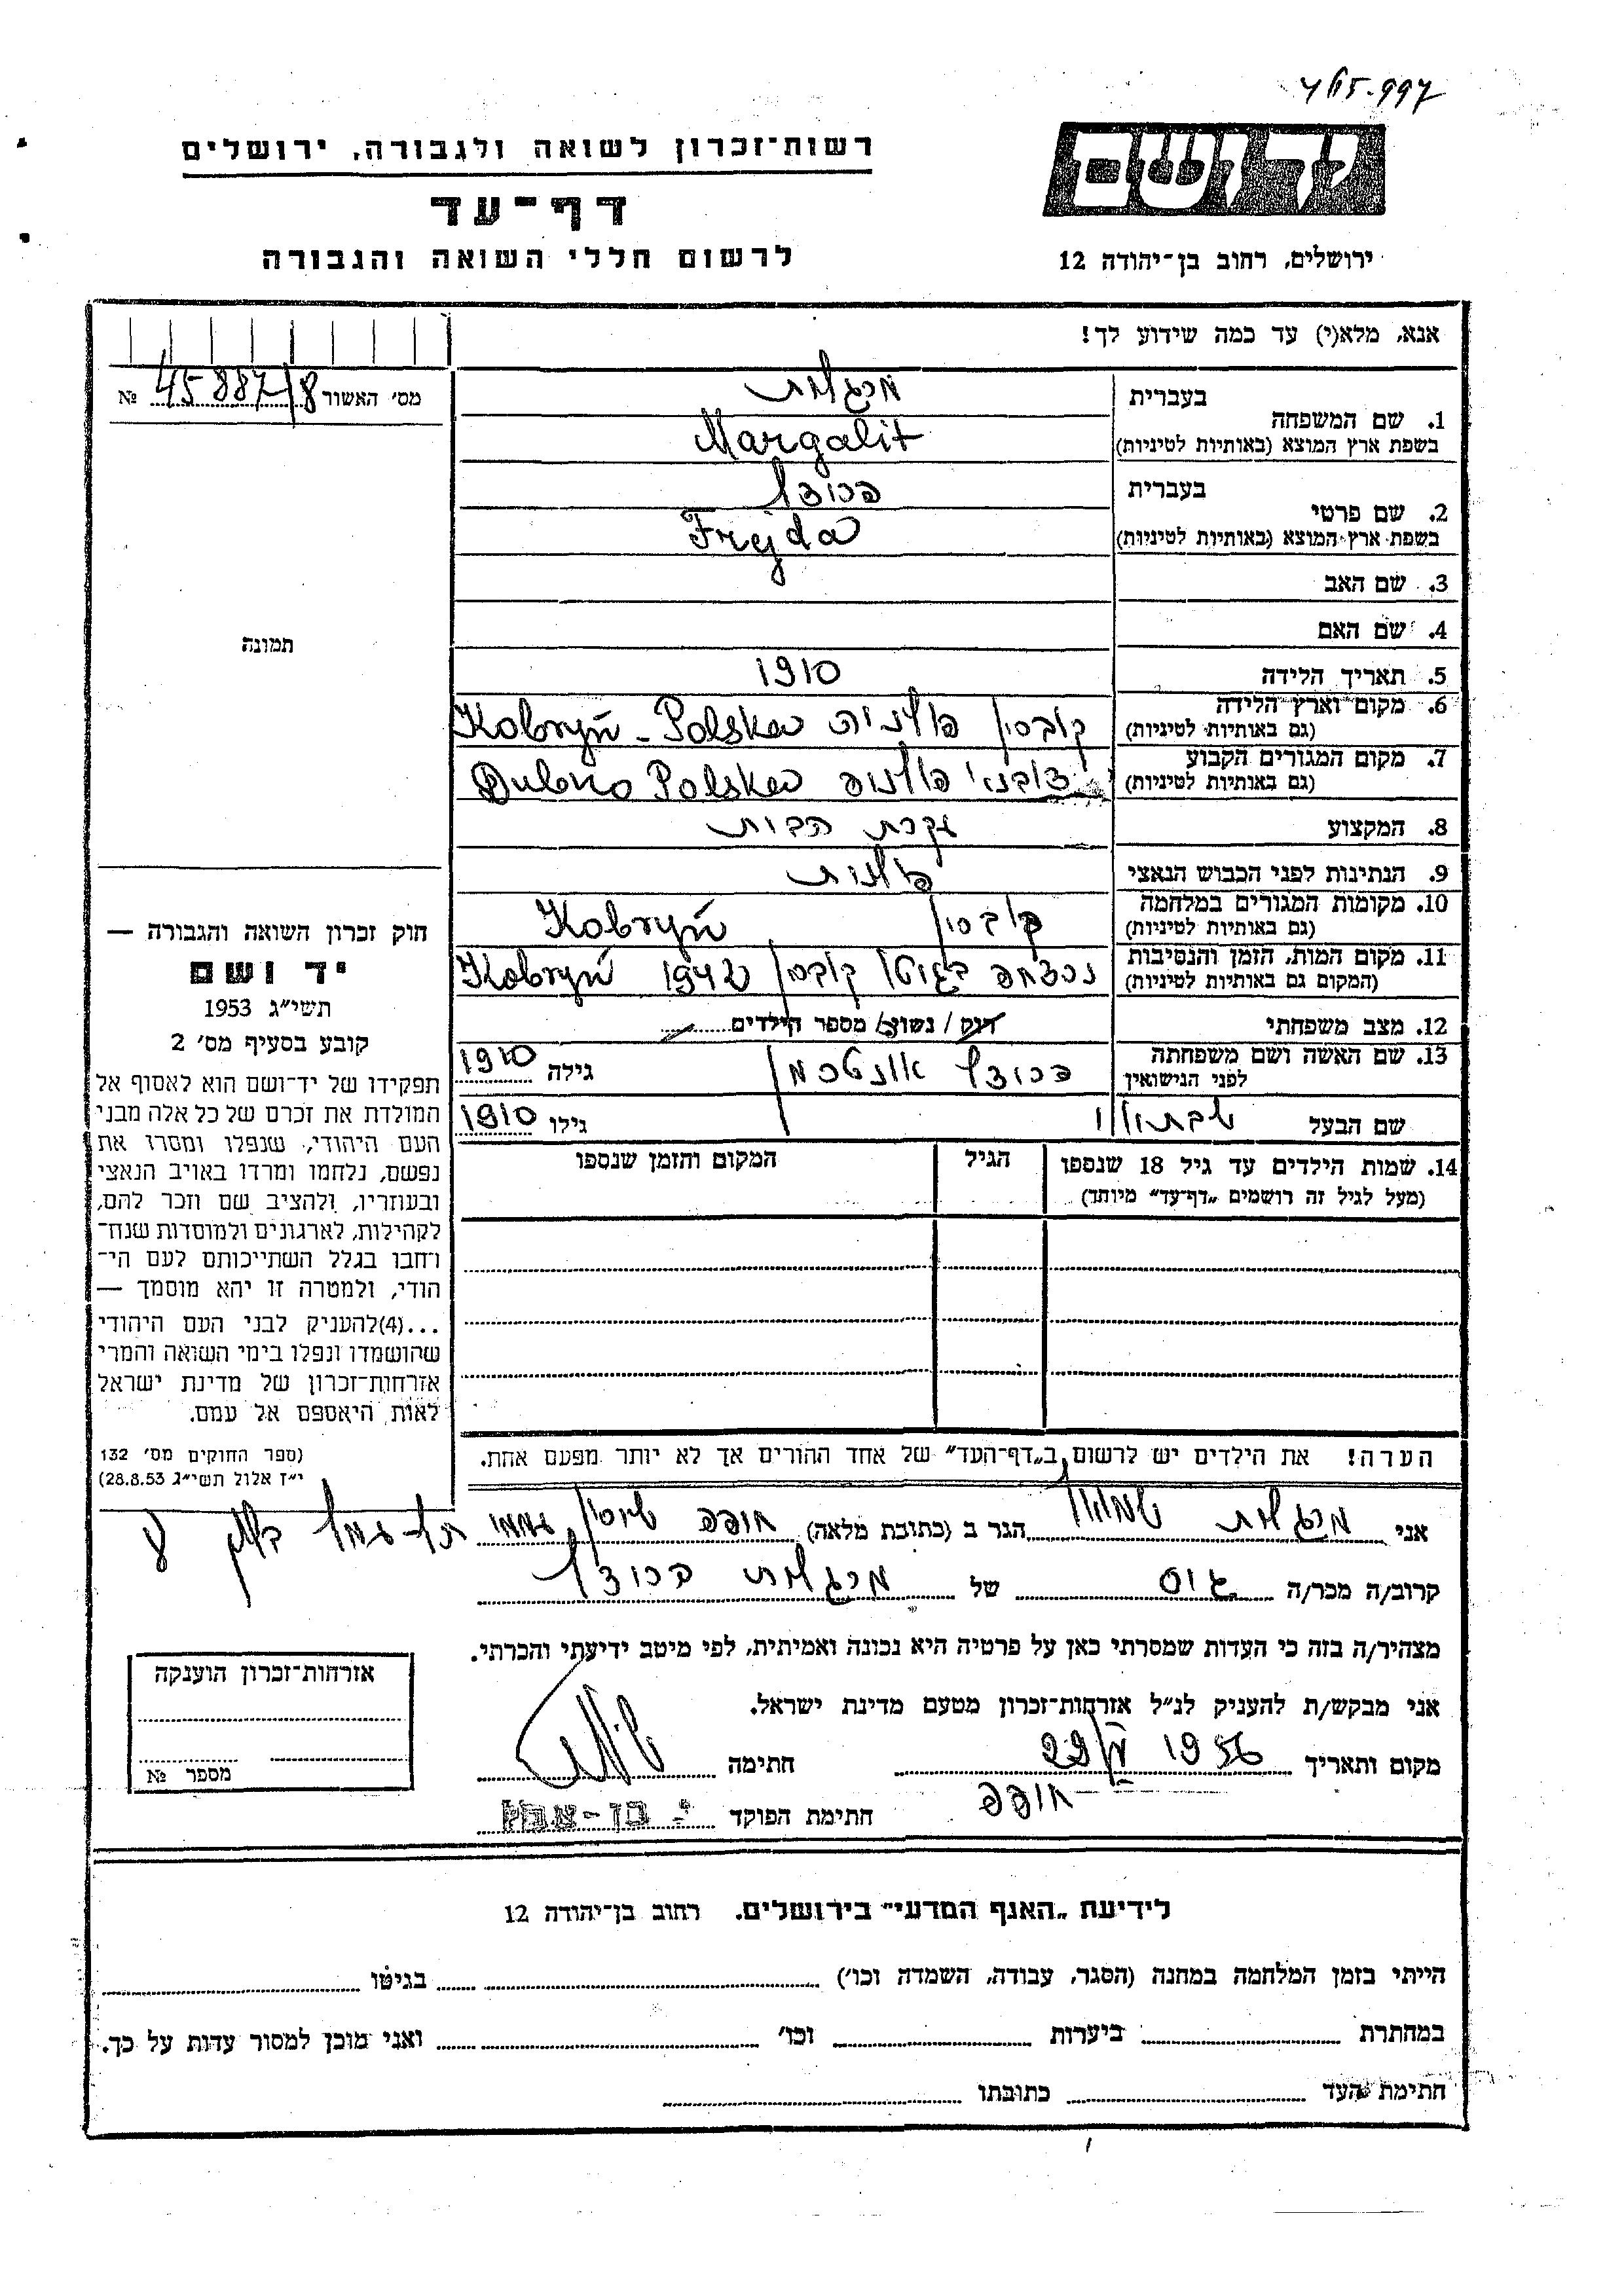 רשות־זכרון לשואה ולגבורה, ירושלים
דף־עד
לרשום חללי השואה והגבורה
יד ושם
ירושלים, רחוב בן־יהודה 12
אנא, מלא(י) עד כמה שידוע לך!
מס׳ האשור 45887/8 №
תמונה
חוק זכרון השואה והגבורה —
יד ושם
תשי״ג 1953
קובע בסעיף מס׳ 2
תפקידו של יד־ושם הוא לאסוף אל
המולדת את זכרם של כל אלה מבני
העם היהודי, שנפלו ומסרו את
נפשם, נלחמו ומרדו באויב הנאצי
ובעוזריו, ולהציב שם וזכר להם,
לקהילות, לארגונים ולמוסדות שנח־
רחבו בגלל השתייכותם לעם הי־
הודי, ולמטרה זו יהא מוסמך —
...(4)להעניק לבני העם היהודי
שהושמדו ונפלו בימי השואה והמרי
אזרחות־זכרון של מדינת ישראל
לאות היאספם אל עמם.
(ספר החוקים מס׳ 132
י״ז אלול תשי״ג 28.8.53)
1. שם המשפחה בעברית מרגלית
בשפת ארץ המוצא (באותיות לטיניות) Margalit
2. שם פרטי בעברית פרידה
בשפת ארץ המוצא (באותיות לטיניות) Frejda
3. שם האב
4. שם האם
5. תאריך הלידה 1910
6. מקום וארץ הלידה (גם באותיות לטיניות) קוברין פולניה Kobryń - Polska
7. מקום המגורים הקבוע (גם באותיות לטיניות) פולניה Polska
8. המקצוע עקרת הבית
9. הנתינות לפני הכבוש הנאצי פולנית
10. מקומות המגורים במלחמה (גם באותיות לטיניות) קוברין Kobryń
11. מקום המות, הזמן והנסיבות (המקום גם באותיות לטיניות) נרצחה בגיטו קוברין 1942 Kobryń
12. מצב משפחתי רוק / נשוי / מספר הילדים
13. שם האשה ושם משפחתה לפני הנישואין פרידה גילה 1910
שם הבעל גילו 1910
14. שמות הילדים עד גיל 18 שנספו (מעל לגיל זה רושמים „דף־עד״ מיוחד) הגיל המקום והזמן שנספו
הערה! את הילדים יש לרשום ב„דף־העד״ של אחד ההורים אך לא יותר מפעם אחת.
אני מרגלית שמואל הגר ב (כתובת מלאה) חיפה
קרוב/ה מכר/ה גיס של מרגלית פרידה
מצהיר/ה בזה כי העדות שמסרתי כאן על פרטיה היא נכונה ואמיתית, לפי מיטב ידיעתי והכרתי.
אני מבקש/ת להעניק לנ״ל אזרחות־זכרון מטעם מדינת ישראל.
מקום ותאריך 1956 חתימה
חיפה
חתימת הפוקד
אזרחות־זכרון הוענקה
מספר №
לידיעת „האגף המדעי״ בירושלים. רחוב בן־יהודה 12
הייתי בזמן המלחמה במחנה (הסגר, עבודה, השמדה וכו׳) בגיטו
במחתרת ביערות וכו׳ ואני מוכן למסור עדות על כך.
חתימת העד כתובתו